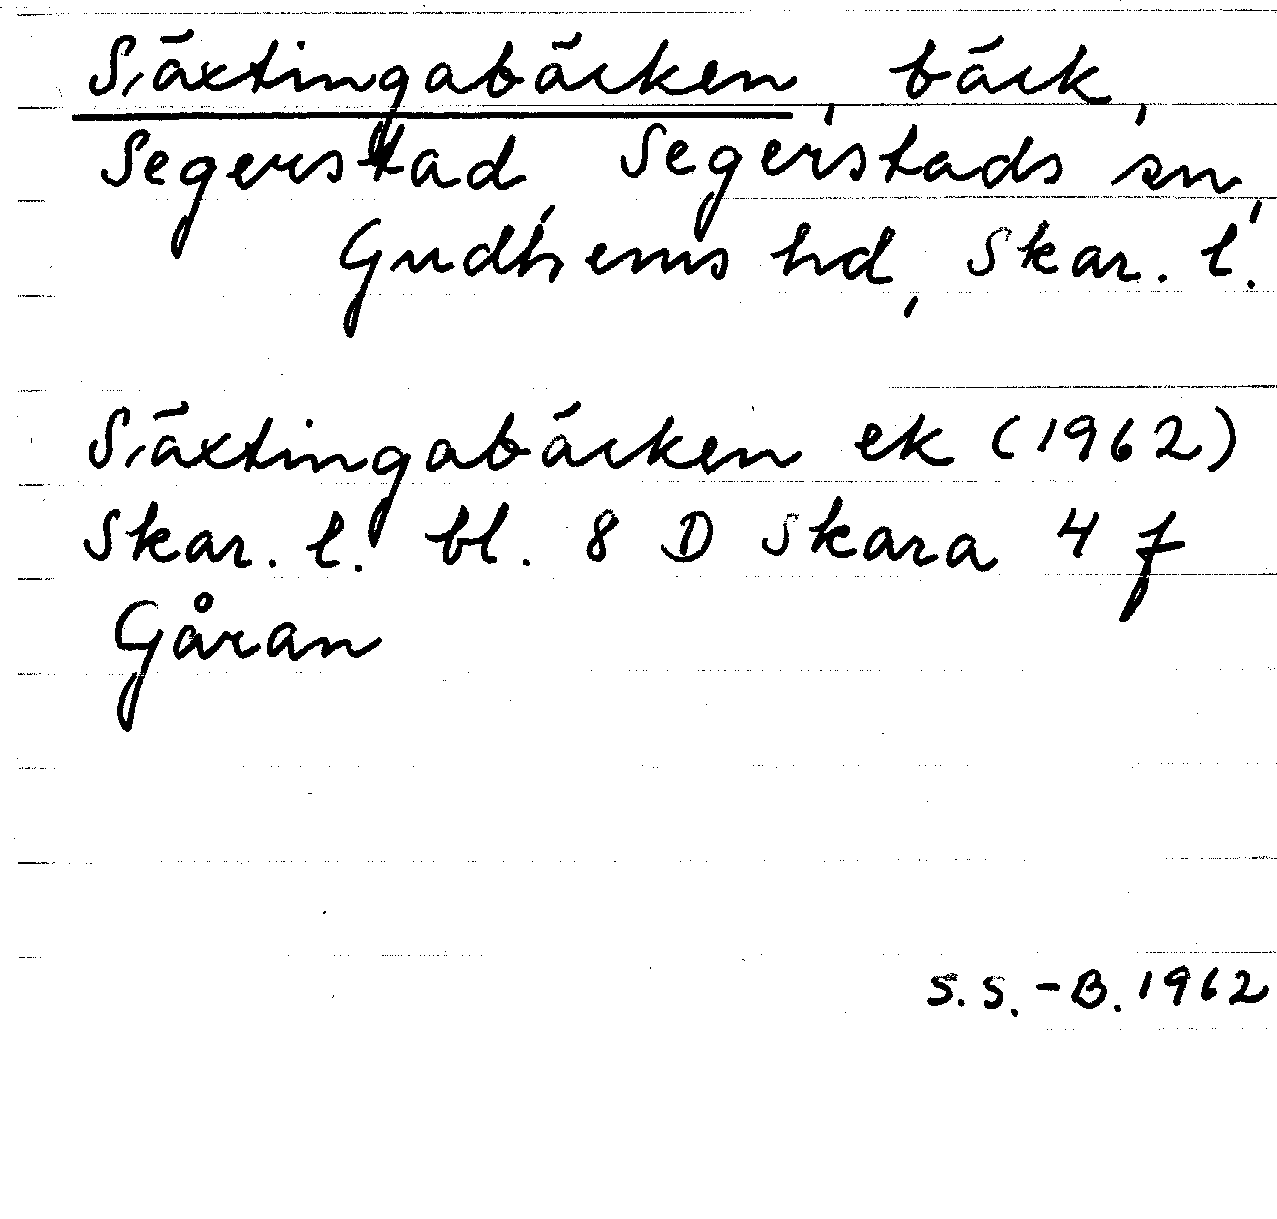 Säxtingabäcken, bäck,
Segerstad, Segerstads sn,
Gudhems hd, Skar. l.
Säxtingabäcken ek (1962)
Skar. l. bl. 8 D Skara 4 f
Gåran
S. S. - B. 1962